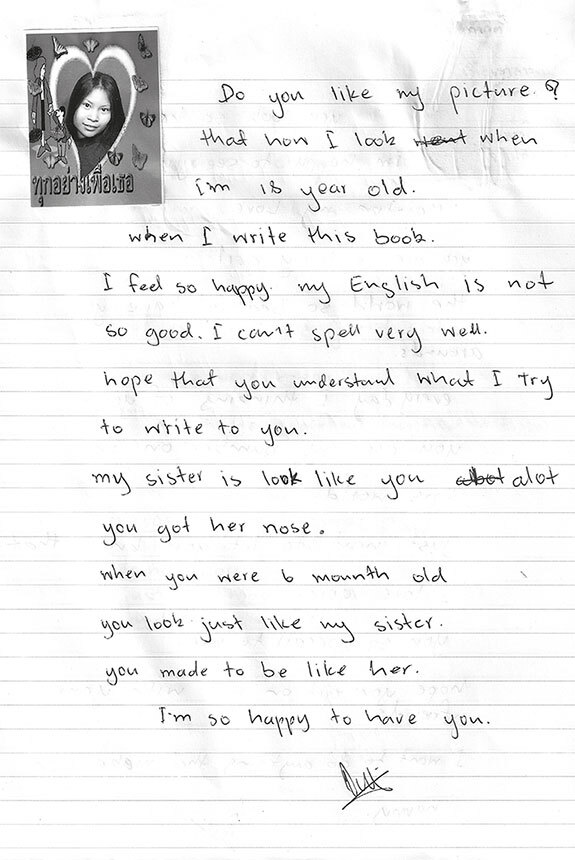 Do you like my picture.?
ทุกอย่างเพื่อเธอ
that how I look when
i'm 18 year old.
when I write this book.
I feel so happy. my English is not
so good. I can't spell very well.
hope that you understand what I try
to write to you.
my sister is look like you alot
you got her nose.
when you were 6 mounth old
you look just like my sister.
you made to be like her.
I'm so happy to have you.